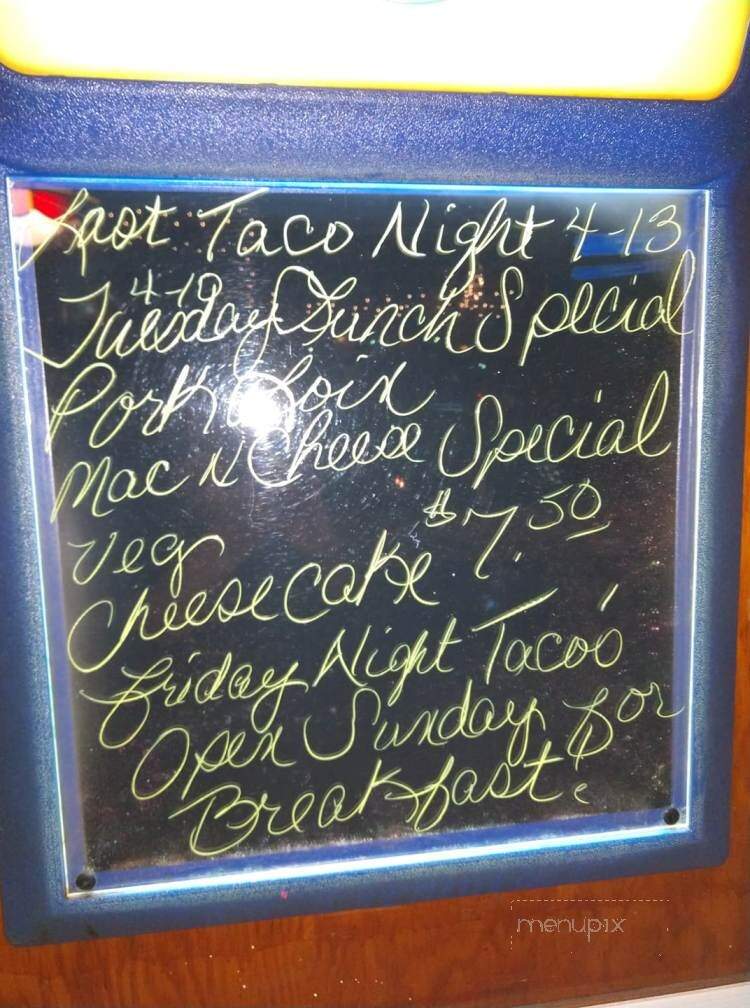 Last Taco Night 4-13
4-10
Tuesday Lunch Special
Pork Loin
Mac N Cheese Special
Veg $7.50
Cheesecake
Friday Night Taco's
Open Sunday for
Breakfast!
menupix